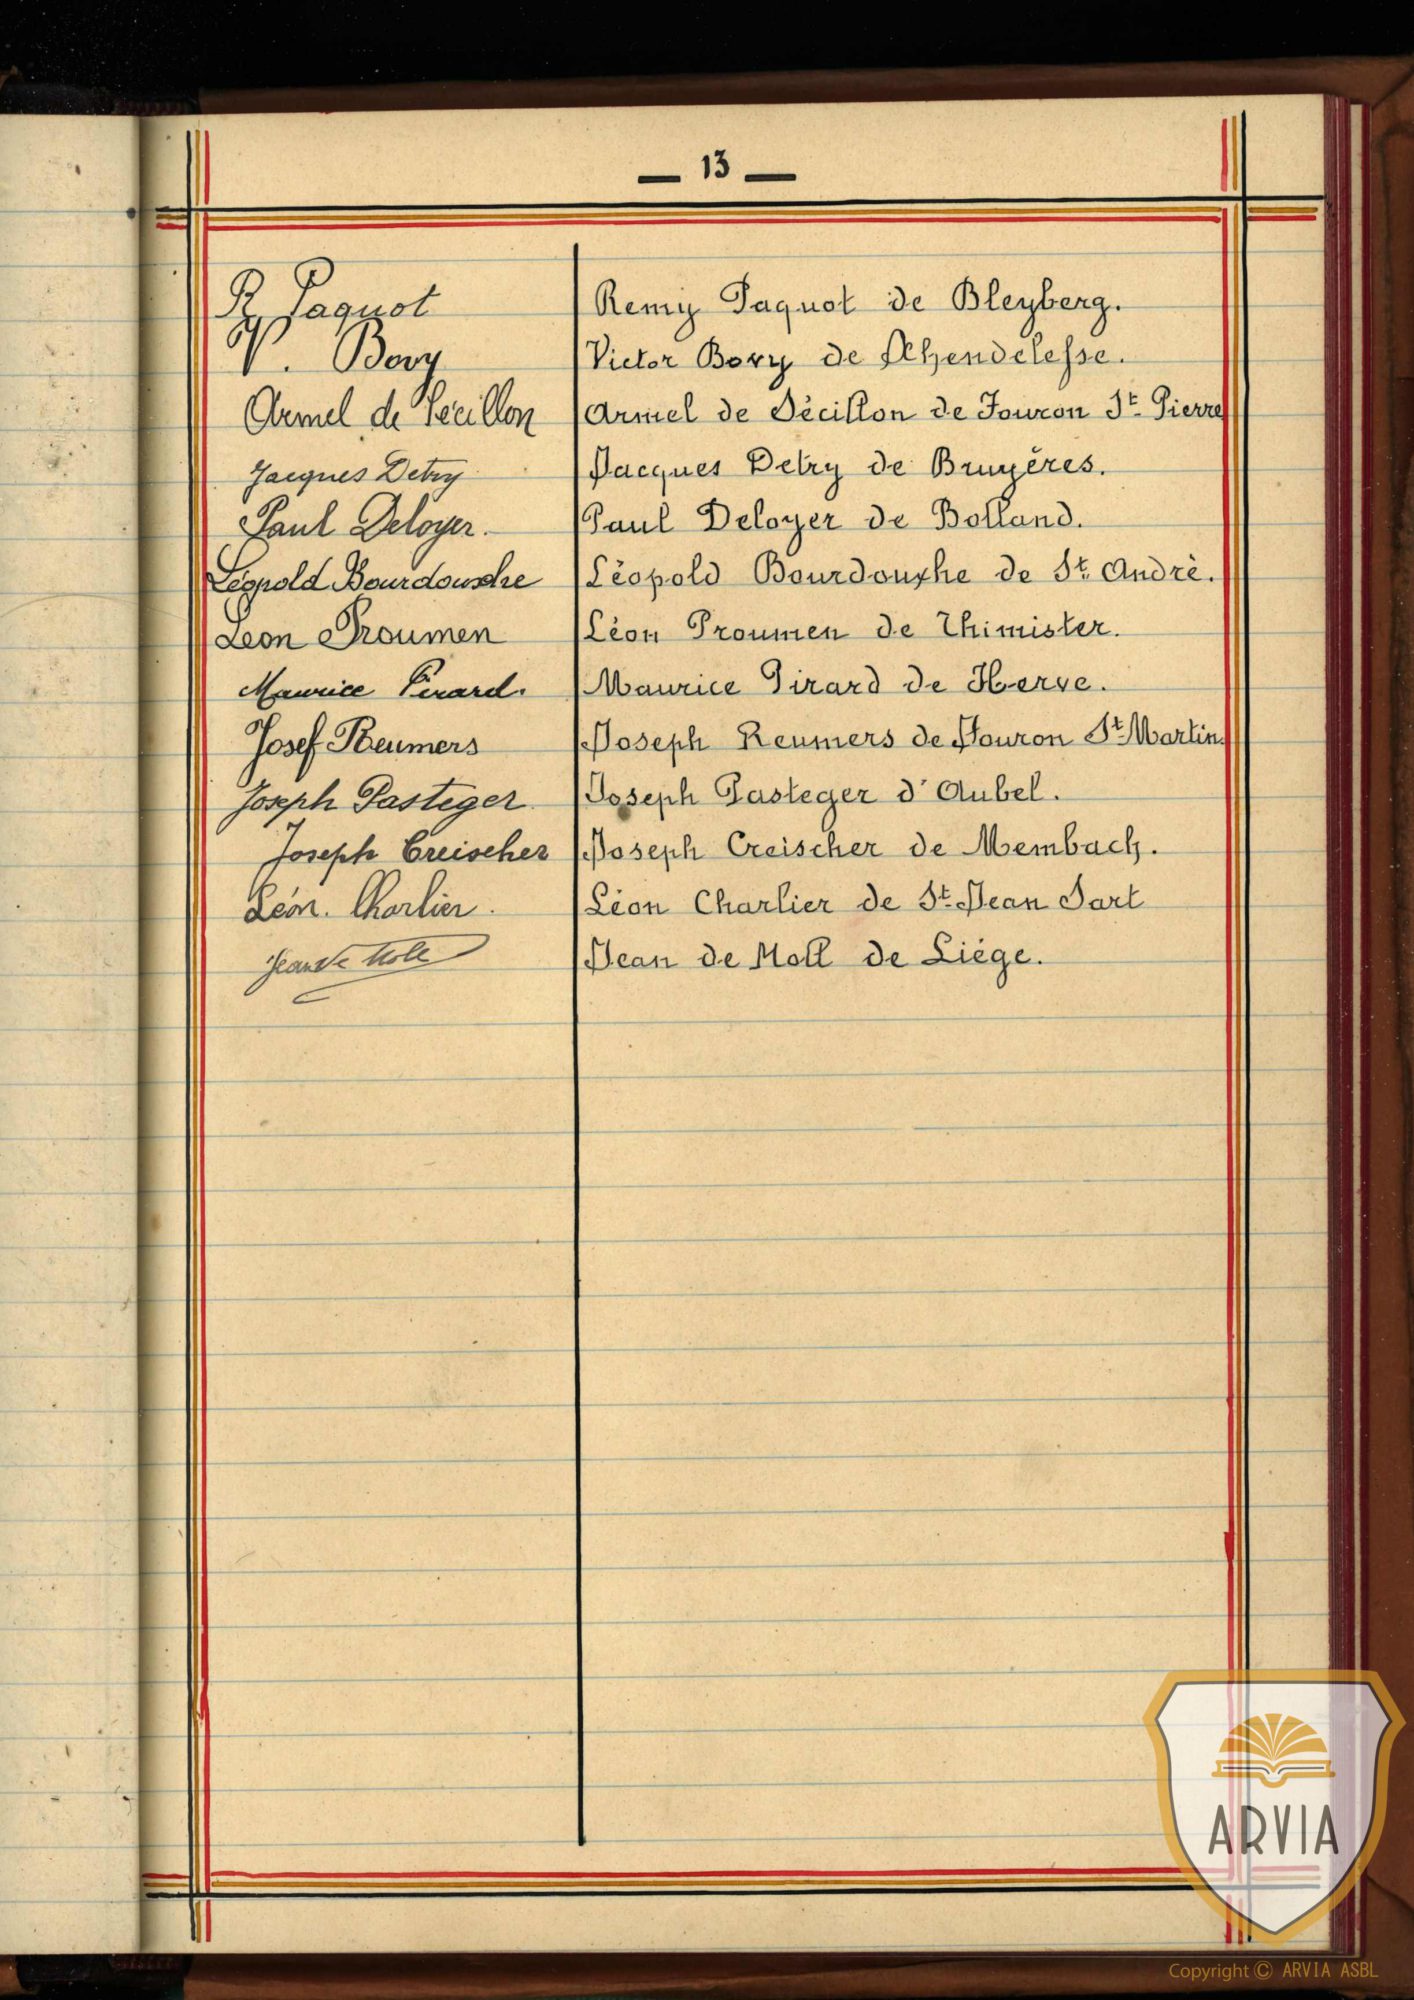 13
R. Paquot Remy Paquot de Bleyberg.
V. Bovy Victor Bovy de Xhendelesse.
Armel de Sécillon Armel de Sécillon de Fouron St. Pierre
Jacques Detry Jacques Detry de Bruyères.
Paul Deloyer. Paul Deloyer de Bolland.
Léopold Bourdouxhe Léopold Bourdouxhe de St. André.
Leon Proumen Léon Proumen de Thimister.
Maurice Pirard. Maurice Pirard de Herve.
Josef Reumers Joseph Reumers de Fouron St. Martin.
Joseph Pasteger Joseph Pasteger d'Aubel.
Joseph Creischer Joseph Creischer de Membach.
Léon. Charlier. Léon Charlier de St. Jean Sart
Jean de Moll de Liége.
ARVIA
Copyright © ARVIA ASBL